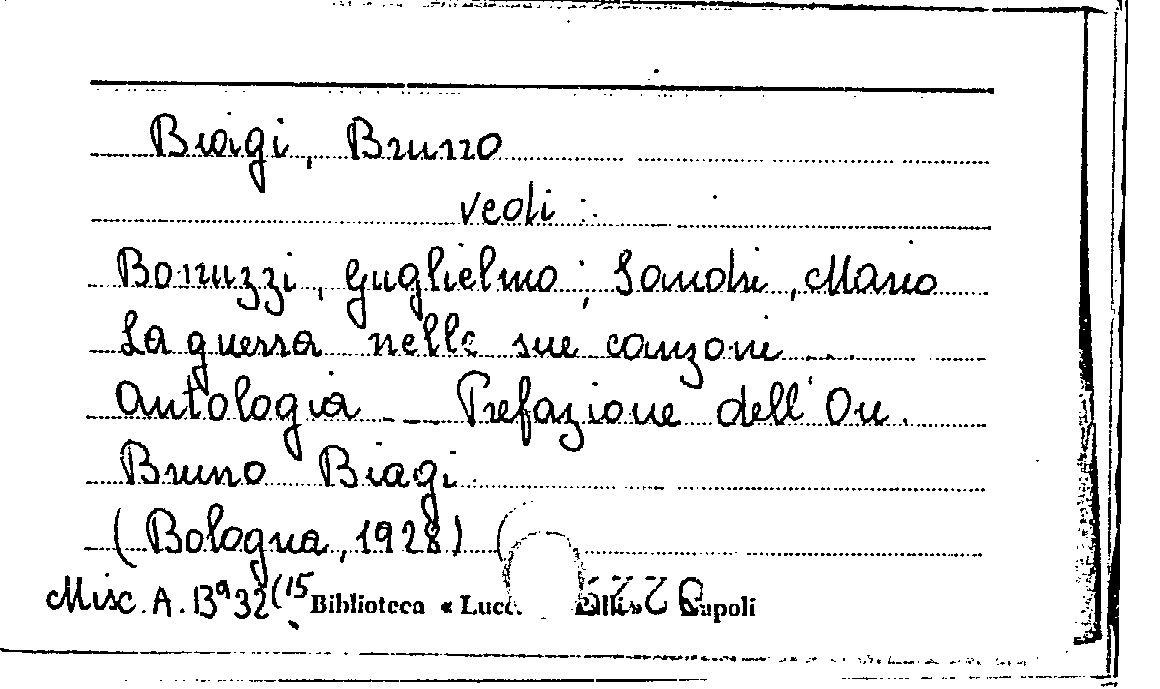 Biagi, Bruno
vedi:
Bonuzzi, Guglielmo; Sandri, Mario
La guerra nelle sue canzoni ...
Antologia - Prefazione dell'On.
Bruno Biagi
(Bologna, 1928)
Misc. A. Bª 32 (15 Biblioteca « Lucc Palli» Napoli